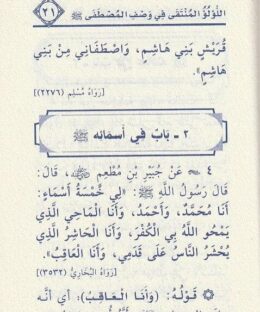 اللُّؤْلُؤُ المُنْتَقَى فِي وَصْفِ المُصْطَفَى ﷺ ٢١
قُرَيْشٍ بَنِي هَاشِمٍ، وَاصْطَفَانِي مِنْ بَنِي
هَاشِمٍ».
[رَوَاهُ مُسْلِم (٢٢٧٦)]
٢ - بَابٌ فِي أَسْمَائِهِ ﷺ
٤ عَنْ جُبَيْرِ بْنِ مُطْعِمٍ ﷺ، قَالَ:
قَالَ رَسُولُ اللَّهِ ﷺ: «لِي خَمْسَةُ أَسْمَاءٍ:
أَنَا مُحَمَّدٌ، وَأَحْمَدُ، وَأَنَا الْمَاحِي الَّذِي
يَمْحُو اللَّهُ بِي الْكُفْرَ، وَأَنَا الْحَاشِرُ الَّذِي
يُحْشَرُ النَّاسُ عَلَى قَدَمِي، وَأَنَا الْعَاقِبُ».
[رَوَاهُ الْبُخَارِيُّ (٣٥٣٢)]
قَوْلُهُ: (وَأَنَا الْعَاقِبُ): أَيْ أَنَّهُ